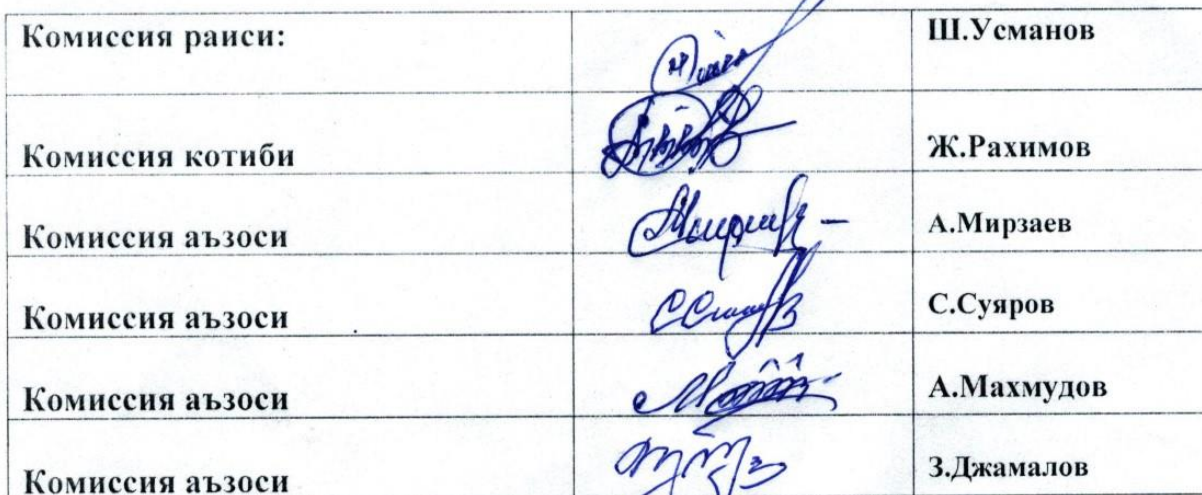 Комиссия раиси: Ш.Усманов
Комиссия котиби Ж.Рахимов
Комиссия аъзоси А.Мирзаев
Комиссия аъзоси С.Суяров
Комиссия аъзоси А.Махмудов
Комиссия аъзоси З.Джамалов